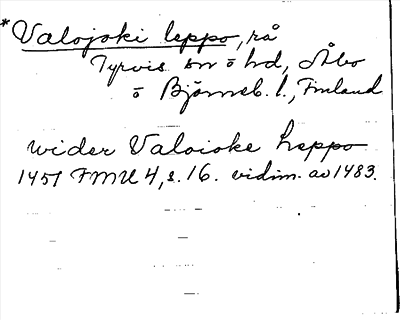 *Valojoki leppo, rå
Tyrvis sn o hd, Åbo
o Björneb. l., Finland
wider Valoioke heppo
1451 FMU 4, s. 16. vidim. av 1483.